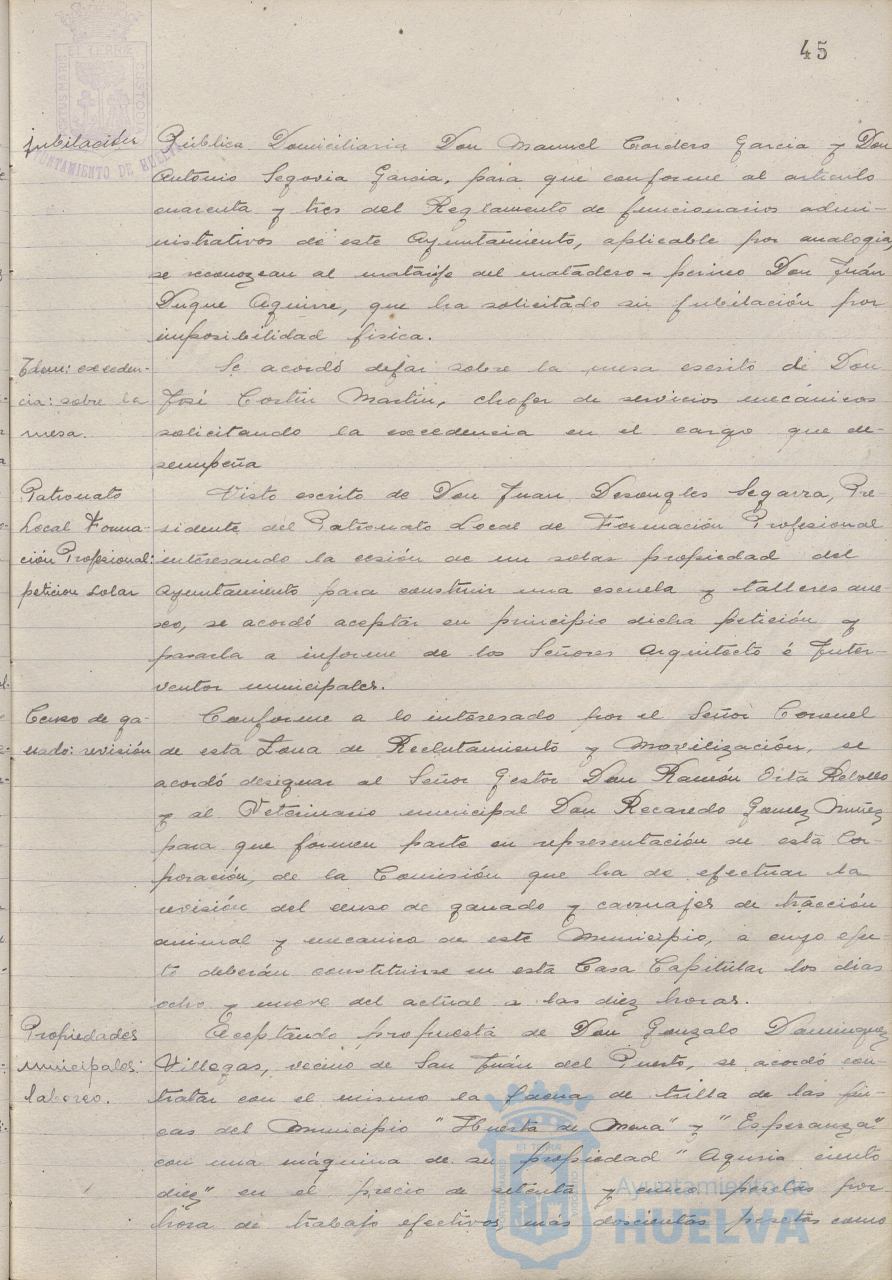 45
jubilación
Pública Domiciliaria Don Manuel Cordero Garcia y Don
Antonio Segovia Garcia, para que conforme al articulo
cuarenta y tres del Reglamento de funcionarios admi-
nistrativos de este Ayuntamiento, aplicable por analogia,
se reconozcan al matarife del matadero - perino Don Juán
Duque Aguirre, que ha solicitado su jubilación por
imposibilidad fisica.
Idem: exceden-
cia: sobre la
mesa.
Se acordó dejar sobre la mesa escrito de Don
José Costin Martin, chofer de servicios mecánicos
solicitando la excedencia en el cargo que de-
sempeña
Patronato
Local Forma-
ción Profesional:
peticion solar
Visto escrito de Don Juan Desongles Segarra, Pre-
sidente del Patronato Local de Formación Profesional
interesando la cesión de un solar propiedad del
Ayuntamiento para construir una escuela y talleres ane-
xo, se acordó aceptar en principio dicha petición y
pasarla a informe de los Señores Arquitecto é Inter-
ventor municipales.
Censo de ga-
nado: revisión
Conforme a lo interesado por el Señor Coronel
de esta Zona de Reclutamiento y Movilización, se
acordó designar al Señor Gestor Don Ramón Orta Rebollo
y al Veterinario municipal Don Recaredo Gomez Muñiz
para que formen parte en representación de esta Cor-
poración, de la Comisión que ha de efectuar la
revisión del censo de ganado y carruajes de tracción
animal y mecanica de este Municipio, a cuyo efec-
to deberán constituirse en esta Casa Capitular los dias
ocho y nueve del actual a las diez horas.
Propiedades
municipales:
laboreo.
Aceptando propuesta de Don Gonzalo Dominguez
Villegas, vecino de San Juán del Puerto, se acordó con-
tratar con el mismo la faena de trilla de las fin-
cas del Municipio "Huerta de Mena" y "Esperanza"
con una máquina de su propiedad "Aguria ciento
diez" en el precio de setenta y cinco pesetas por
hora de trabajo efectivos, más doscientas pesetas como
Ayuntamiento de
HUELVA